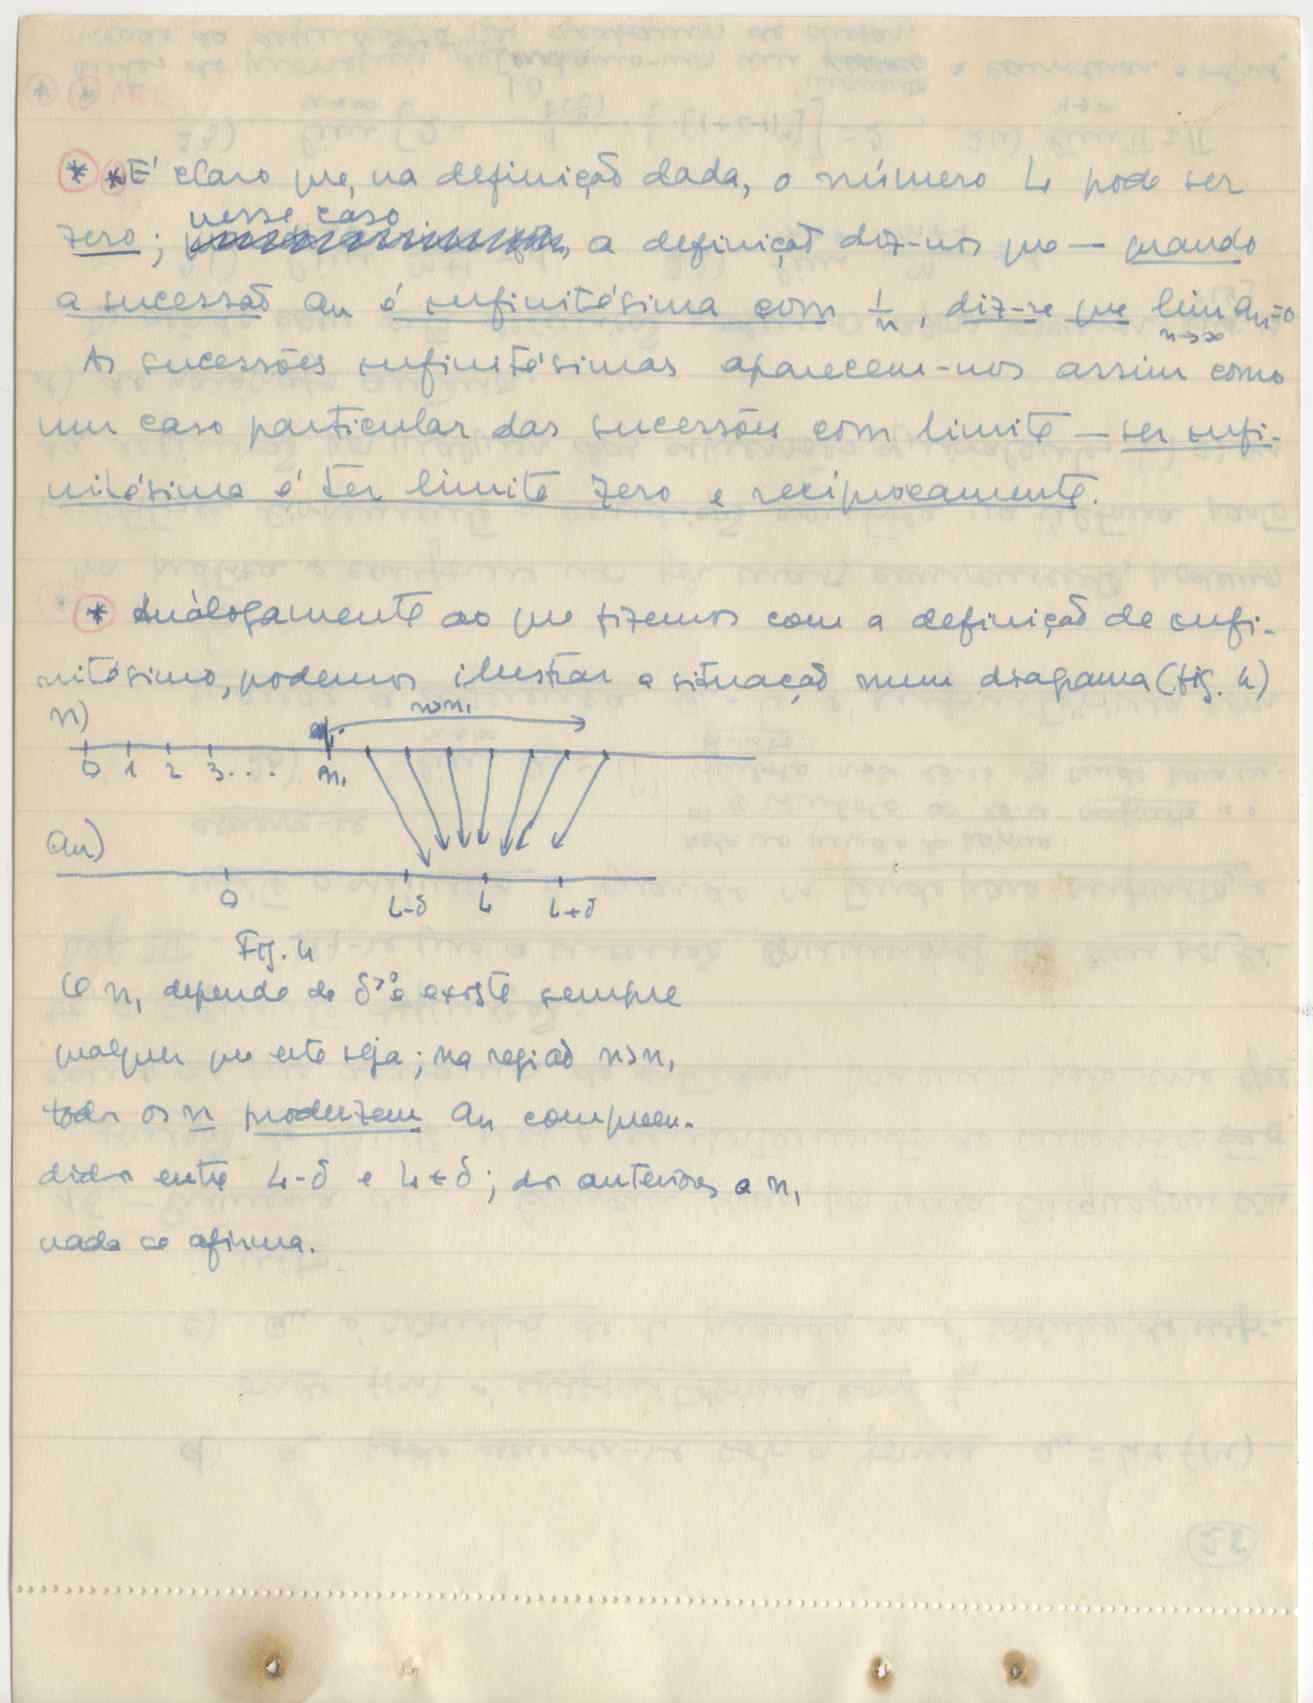 * * É claro que, na definição dada, o número L pode ser
nesse caso
zero; a definição diz-nos que — quando
a sucessão an é infinitésima com 1/n, diz-se que lim an=0
n→∞
As sucessões infinitésimas aparecem-nos assim como
um caso particular das sucessões com limite — ser infi-
nitésima é ter limite zero e recíprocamente.
* Análogamente ao que fizemos com a definição de infi-
nitésimo, podemos ilustrar a situação num diagrama (fig. 4)
n)
n>n1
0 1 2 3... n1
an)
0 L-δ L L+δ
Fig. 4
O n1 depende de δ>0 e existe sempre
qualquer que este seja; na região n>n1
todos os n produzem an compreen-
didos entre L-δ e L+δ; dos anteriores a n1
nada se afirma.